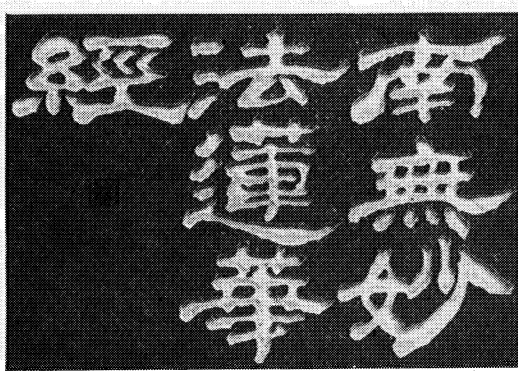 南無妙
法蓮華
經